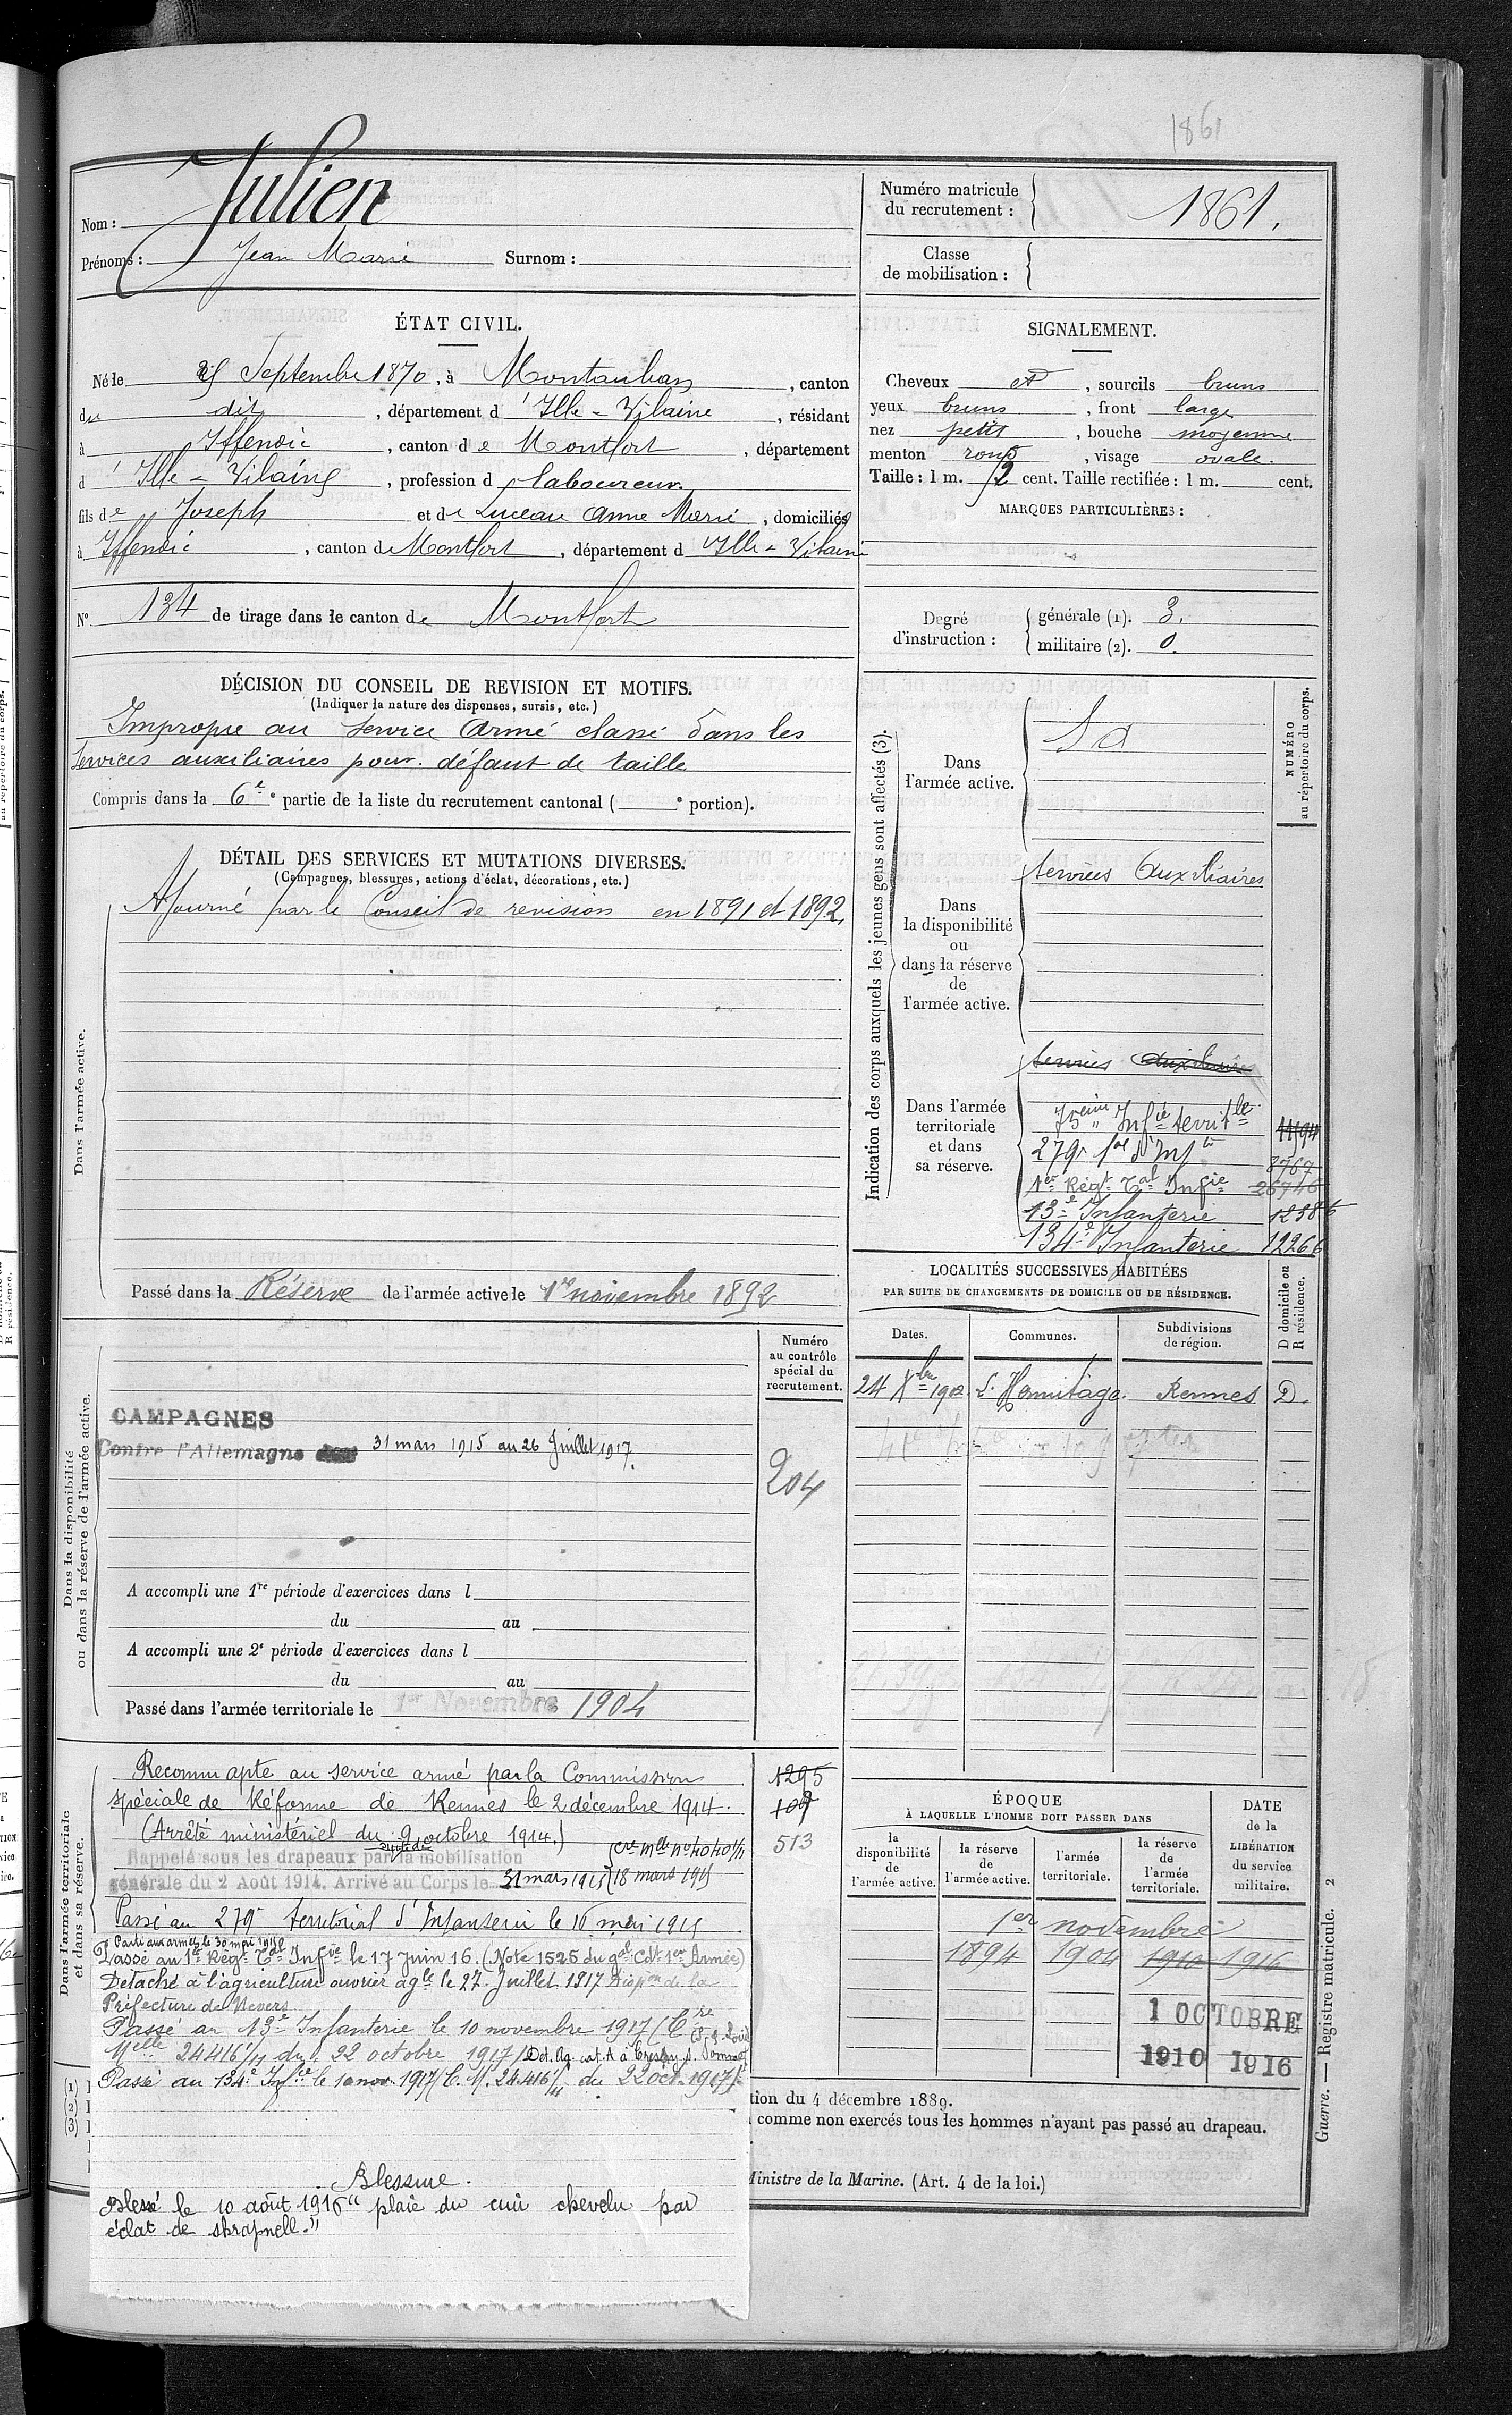 1861
Nom : Julien
Prénoms : Jean Marie Surnom :
Numéro matricule du recrutement : 1861.
Classe de mobilisation :
ÉTAT CIVIL.
Né le Septembre 1870, à Montauban, canton
du dit, département d'Ille-Vilaine, résidant
à Iffendic, canton de Montfort, département
d'Ille-Vilaine, profession d laboureur
fils de Joseph et de Luceau Anne Marie, domiciliés
à Iffendic, canton de Montfort, département d'Ille-Vilaine
N° 134 de tirage dans le canton de Montfort
SIGNALEMENT.
Cheveux et, sourcils bruns
yeux bruns, front large
nez petit, bouche moyenne
menton rond, visage ovale.
Taille : 1 m. cent. Taille rectifiée : 1 m. cent.
MARQUES PARTICULIÈRES :
Degré d'instruction : générale (1). 3.
militaire (2). 0.
DÉCISION DU CONSEIL DE REVISION ET MOTIFS.
(Indiquer la nature des dispenses, sursis, etc.)
Impropre au service armé classé dans les
services auxiliaires pour défaut de taille
Compris dans la 6e partie de la liste du recrutement cantonal ( e portion).
DÉTAIL DES SERVICES ET MUTATIONS DIVERSES.
(Campagnes, blessures, actions d'éclat, décorations, etc.)
Dans l'armée active.
Ajourné par le Conseil de revision en 1891 et 1892.
Passé dans la Réserve de l'armée active le 1er novembre 1892
Indication des corps auxquels les jeunes gens sont affectés (3).
NUMÉRO au répertoire du corps.
Dans l'armée active.
Dans la disponibilité ou dans la réserve de l'armée active.
Services Auxiliaires
Dans l'armée territoriale et dans sa réserve.
Services Auxiliaires
75eme Infie territle
279e tal d'Infie 8767
1er Régt Tal Infie 26746
13e Infanterie
134e Infanterie 12266
LOCALITÉS SUCCESSIVES HABITÉES
PAR SUITE DE CHANGEMENTS DE DOMICILE OU DE RÉSIDENCE.
Dates. Communes. Subdivisions de région. D domicile ou R résidence.
24 Xbre 1902 L'Hermitage. Rennes D.
Dans la disponibilité ou dans la réserve de l'armée active.
Numéro au contrôle spécial du recrutement.
CAMPAGNES
Contre l'Allemagne 31 mars 1915 au 26 Juillet 1917.
204
A accompli une 1re période d'exercices dans l
du au
A accompli une 2e période d'exercices dans l
du au
Passé dans l'armée territoriale le 1er Novembre 1904
Dans l'armée territoriale et dans sa réserve.
Reconnu apte au service armé par la Commission 1295
spéciale de Réforme de Rennes le 2 décembre 1914.
(Arrêté ministériel du 9 octobre 1914.) 513
Rappelé sous les drapeaux par la mobilisation (Cre Mlle n° 4040 1/11
générale du 2 Août 1914. Arrivé au Corps le 31 mars 1915 (18 mars 1915
Passé au 279e territorial d'Infanterie le 16 mai 1915
Parti aux armées le 30 mai 1915
Passé au 1er Régt Tal Infie le 17 Juin 16. (Note 1525 du Gal Cdt 1ère Armée)
Détaché à l'agriculture ouvrier agle le 27 Juillet 1917 Dispon de la
Préfecture de Nevers
Passé au 13e Infanterie le 10 novembre 1917 (Cre
Melle 24416 1/11 du 22 octobre 1917) Dét. Ag. cat. A à
Passé au 134e Infie le 10 nov. 1917 (C. M. 24.416 1/11 du 22 oct. 1917)
Blessure.
Blessé le 10 août 1916 " plaie du cuir chevelu par
éclat de shrapnell."
ÉPOQUE
À LAQUELLE L'HOMME DOIT PASSER DANS
la disponibilité de l'armée active. la réserve de l'armée active. l'armée territoriale. la réserve de l'armée territoriale.
DATE de la LIBÉRATION du service militaire.
1er novembre
1894 1904 1910 1916
1 OCTOBRE
1910 1916
tion du 4 décembre 1889.
comme non exercés tous les hommes n'ayant pas passé au drapeau.
Ministre de la Marine. (Art. 4 de la loi.)
Guerre. — Registre matricule. 2